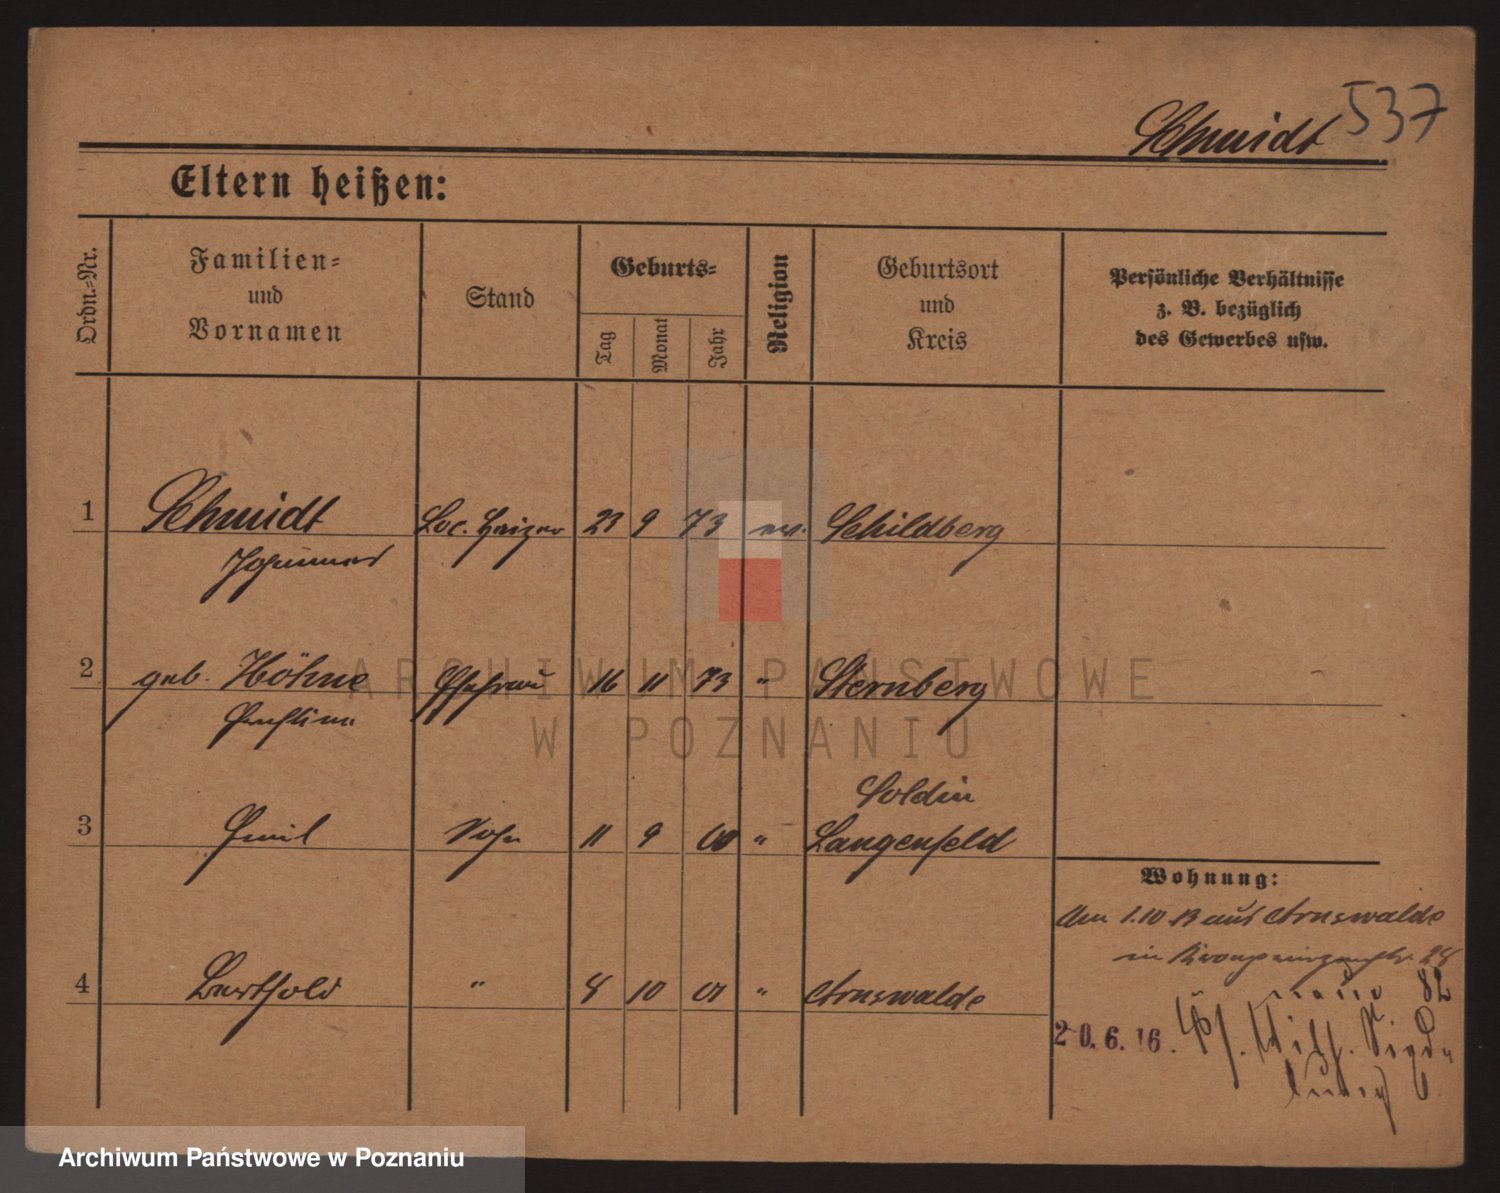 537
Schmidt
Eltern heißen:
Ordn.-Nr.
Familien- und Vornamen
Stand
Geburts-
Tag
Monat
Jahr
Religion
Geburtsort und Kreis
Persönliche Verhältnisse z. B. bezüglich des Gewerbes usw.
1 Schmidt Loc. Heizer 23 9 73 ev. Schildberg
Johannes
2 geb. Höhne Ehefrau 16 11 73 " Sternberg
Soldin
3 Emil Sohn 11 9 00 " Langenfeld
Wohnung:
Am 1.10.13 aus Arnswalde
in Kronprinzenstr. 28
82
4 Berthold " 8 10 01 " Arnswalde
20.6.16.
ARCHIWUM PAŃSTWOWE
W POZNANIU
Archiwum Państwowe w Poznaniu